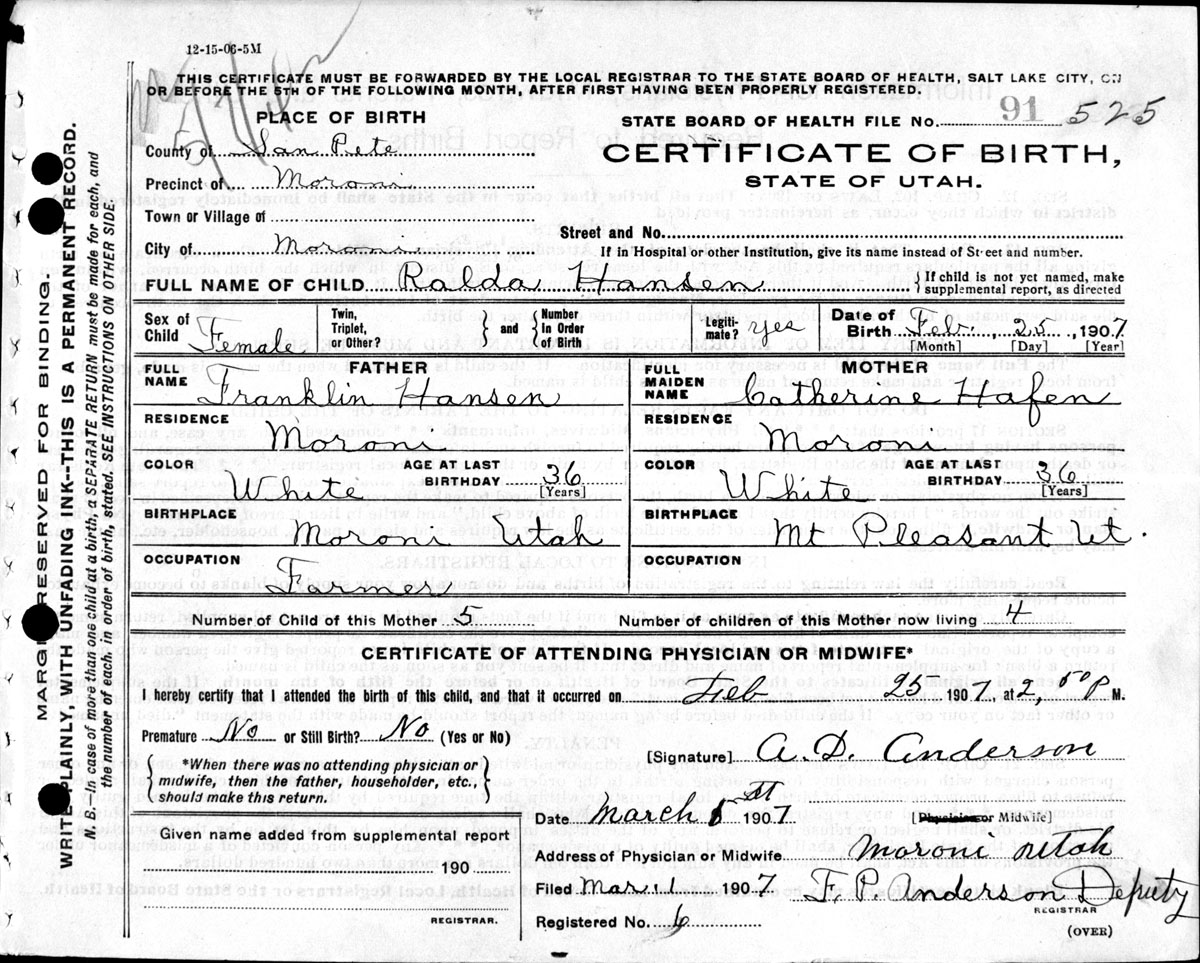 12-15-06-5M
THIS CERTIFICATE MUST BE FORWARDED BY THE LOCAL REGISTRAR TO THE STATE BOARD OF HEALTH, SALT LAKE CITY, ON
OR BEFORE THE 5TH OF THE FOLLOWING MONTH, AFTER FIRST HAVING BEEN PROPERLY REGISTERED.
PLACE OF BIRTH
STATE BOARD OF HEALTH FILE No. 91 525
County of San Pete
CERTIFICATE OF BIRTH,
Precinct of Moroni
STATE OF UTAH.
Town or Village of
Street and No.
City of Moroni
If in Hospital or other Institution, give its name instead of Street and number.
FULL NAME OF CHILD Ralda Hansen { If child is not yet named, make supplemental report, as directed
Sex of Child Female Twin, Triplet, or Other? } and { Number in Order of Birth Legitimate? yes Date of Birth Feb. 25, 1907
[Month] [Day] [Year]
FATHER
MOTHER
FULL NAME Franklin Hansen
FULL MAIDEN NAME Catherine Hafen
RESIDENCE Moroni
RESIDENCE Moroni
COLOR White AGE AT LAST BIRTHDAY 36 [Years]
COLOR White AGE AT LAST BIRTHDAY 36 [Years]
BIRTHPLACE Moroni Utah
BIRTHPLACE Mt Pleasant Ut.
OCCUPATION Farmer
OCCUPATION
Number of Child of this Mother 5 Number of children of this Mother now living 4
CERTIFICATE OF ATTENDING PHYSICIAN OR MIDWIFE*
I hereby certify that I attended the birth of this child, and that it occurred on Feb 25 1907, at 2,50 P M.
Premature No or Still Birth? No (Yes or No)
{ *When there was no attending physician or midwife, then the father, householder, etc., should make this return. }
[Signature] A. D. Anderson
Date March 1st 1907 [Physician or Midwife]
Given name added from supplemental report
190
REGISTRAR.
Address of Physician or Midwife Moroni Utah
Filed Mar. 1 1907 F. P. Anderson Deputy
REGISTRAR
Registered No. 6
(OVER)
MARGIN RESERVED FOR BINDING.
WRITE PLAINLY, WITH UNFADING INK—THIS IS A PERMANENT RECORD.
N. B.—In case of more than one child at a birth, a SEPARATE RETURN must be made for each, and
the number of each, in order of birth, stated. SEE INSTRUCTIONS ON OTHER SIDE.